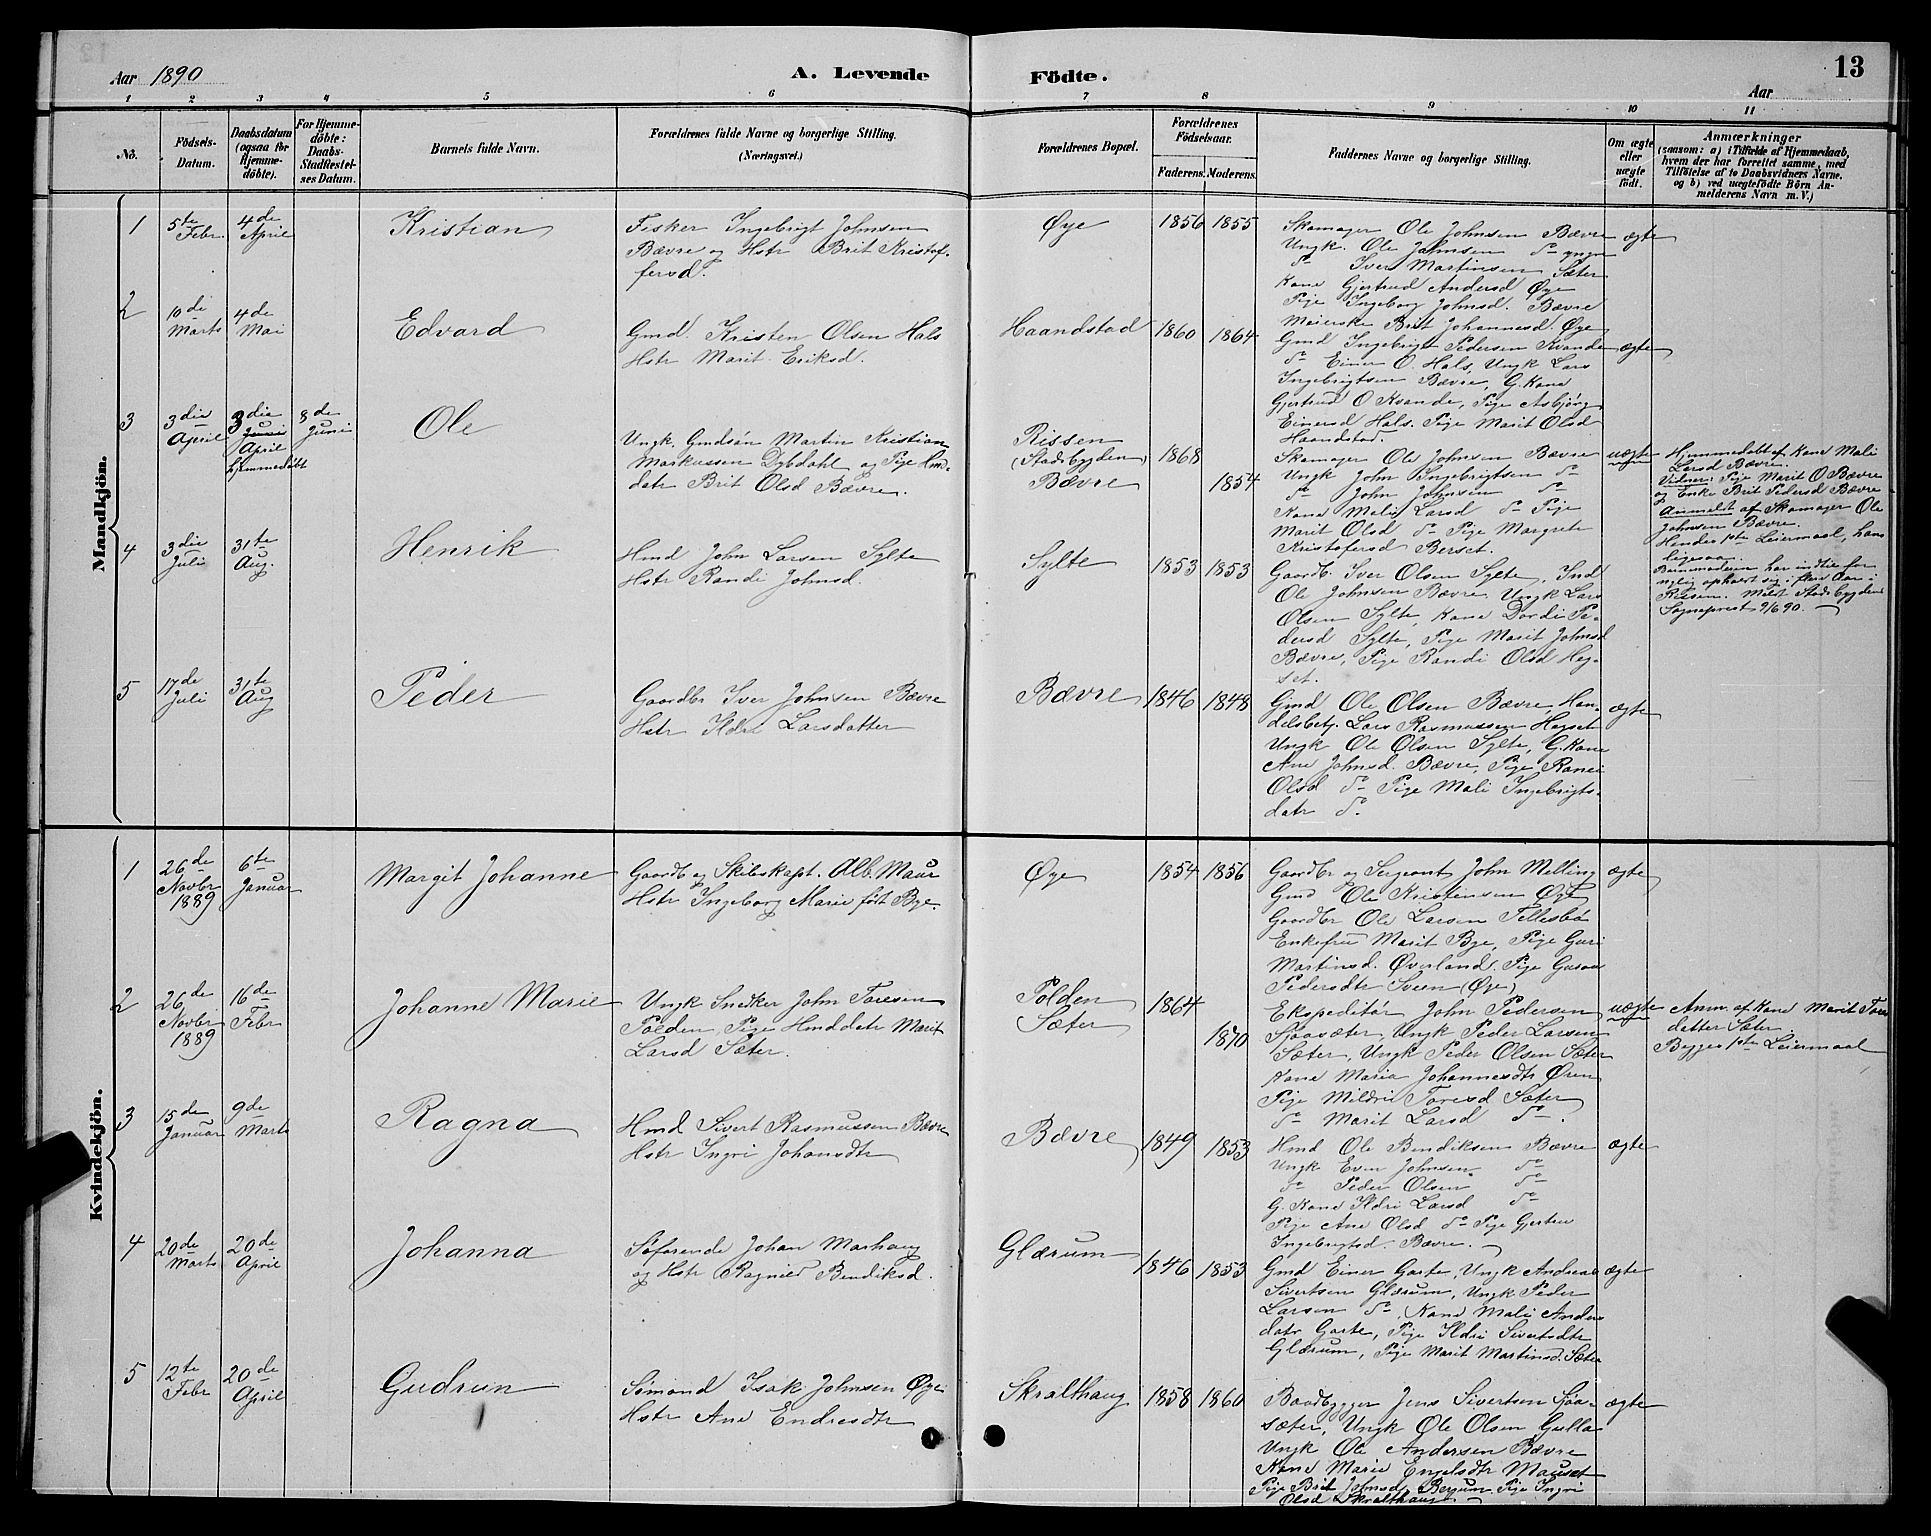 Aar 1890
A. Levende Födte.
13
Aar
1 2 3 4 5 6 7 8 9 10 11
Nö.
Födsels-Datum.
Daabsdatum (ogsaa for Hjemme-döbte).
For Hjemme-döbte: Daabs-Stadfæstel-ses Datum.
Barnets fulde Navn.
Forældrenes fulde Navne og borgerlige Stilling. (Næringsvei.)
Forældrenes Bopæl.
Forældrenes Födselsaar.
Faderens. Moderens.
Faddernes Navne og borgerlige Stilling.
Om ægte eller uægte födt.
Anmærkninger
(saasom: a) i Tilfælde af Hjemmedaab,
hvem der har forrettet samme, med
Tilföielse af to Daabsvidners Navne,
og b) ved uægtefödte Börn An-
melderens Navn m. V.)
Mandkjön.
1
5te Febr.
4de April
Kristian
Fisker Ingebrigt Johnsen
Bævre og Hstr Brit Kristof-
fersd.
Øye
1856 1855
Skomager Ole Johnsen Bævre
Ungk. Ole Johnsen do yngre
do Iver Martinsen Sæter
Kone Gjertrud Andersd Øye
Pige Ingeborg Johnsd. Bævre
Meierske Brit Johannesd. Øye
ægte
2
10de Marts
4de Mai
Edvard
Gmd. Kristen Olsen Hals
Hstr Marit Eriksd.
Haandstad
1860 1864
Gmd Ingebrigt Pedersen Kvande
do Einer O. Hals, Ungk Lars
Ingebrigtsen Bævre, G. Kone
Gjertrud O Kvande, Pige Asbjörg
Einersd Hals. Pige Marit Olsd
Haandstad.
ægte
3
3die April
3die Juni April hjemmedöbt
8de Juni
Ole
Ungk. Gmdsön Martin Kristian
Markussen Dybdahl og Pige Hmd-
datr Brit Olsd Bævre.
Rissen
(Stadsbygden)
Bævre
1868
1854
Skomager Ole Johnsen Bævre
Ungk John Ingebrigtsen do
do John Johnsen do
Kone Mali Larsd do Pige
Marit Olsd do Pige Margrete
Kristofersd Berset.
uægte
Hjemmedöbt af Kone Mali
Larsd Bævre.
Vidner: Pige Marit O Bævre
og Enke Brit Pedersd Bævre
Anmeldt af Skomager Ole
Johnsen Bævre.
Hendes 1ste Leiermaal, hans
ligesaa.
Barnemoderen har indtil for
nylig opholdt sig i flere Aar i
Rissen. Meldt Stadsbygdens
Sogneprest 9/6 90.
4
3die Juli
31te Aug.
Henrik
Hmd John Larsen Sylte
Hstr Randi Johnsd.
Sylte
1853 1853
Gaardb. Iver Olsen Sylte, Ind
Ole Johnsen Bævre, Ungk Lars
Olsen Sylte, Kone Dordi Pe-
dersd Sylte, Pige Marit Johnsd
Bævre, Pige Randi Olsd Heg-
set.
5
17de Juli
31te Aug
Peder
Gaardbr Iver Johnsen Bævre
Hstr Ildri Larsdatter
Bævre
1846 1848
Gmd Ole Olsen Bævre, Han-
delsbetj. Lars Rasmussen Hegset
Ungk Ole Olsen Sylte, G. Kone
Ane Johnsd. Bævre, Pige Randi
Olsd do Pige Mali Ingebrigts-
datr do.
ægte
Kvindekjön.
1
26de Novbr 1889
6te Januar
Margit Johanne
Gaardb og Skibskapt. Alb. Maur
Hstr Ingeborg Marie födt Bye.
Øye
1854 1856
Gaardbr og Sergeant John Melling
Gmd Ole Kristensen Øye
Gaardbr Ole Larsen Tellesbö
Enkefru Marit Bye, Pige Guri
Martinsd. Øverland. Pige
Pedersdtr Sveen (Øye)
ægte
2
26de Novbr 1889
16de Febr
Johanne Marie
Ungk Snedker John Toresen
Polden, Pige Hmddatr Marit
Larsd Sæter.
Polden
Sæter
1864
1870
Ekspeditör John Pedersen
Sjaasæter, Ungk Peder Larsen
Sæter, Ungk Peder Olsen Sæter
Kone Maria Johannesdtr Øren
Pige Mildri Toresd Sæter
do Marit Larsd do.
uægte
Anm. af Kone Marit Tores
datter Sæter.
Begges 1ste Leiermaal
3
15de Januar
9de Marts
Ragna
Hmd Sivert Rasmussen Bævre
Hstr Ingri Johansdtr
Bævre
1849 1853
Hmd Ole Bendiksen Bævre
Ungk Even Johnsen do
do Peder Olsen do
G. Kone Ildri Larsd do
Pige Ane Olsd do Pige Gjertru
Ingebrigtsd. Bævre.
ægte
4
20de Marts
20de April
Johanna
Söfarende Johan Marhaug
og Hstr Ragnild Bendiksd.
Glærum
1846 1853
Gmd Einer Garte, Ungk Andreas
Sivertsen Glærum, Ungk Peder
Larsen do, Kone Mali Anders
datr Garte, Pige Ildri Sivertsdtr
Glærum, Pige Marit Martinsd. Sæter
ægte
5
12te Febr
20de April
Gudrun
Sömand Isak Johnsen Øye
Hstr Ane Endresdtr
Skralthaug
1858 1860
Baadbygger Jens Sivertsen Sjaa-
sæter, Ungk Ole Olsen Gulla
Ungk Ole Andersen Bævre
Kone Marie Engelsdtr Mauset
Pige Brit Johnsd. Bergum Pige Ingri
Olsd Skralthaug
ægte